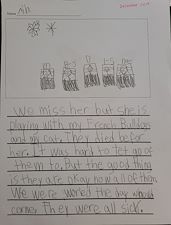 We miss her but she is
playing with my French Bulldog
and my cat. They died before
her. It was hard to let go of
them to, but the good thing
is they are okay now all of them.
We were worried the day would
come. They were all sick.